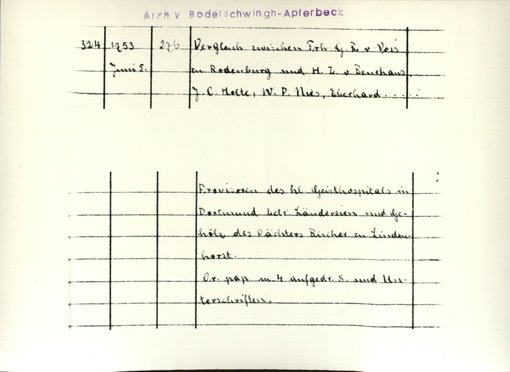 Arch v Bodelschwingh-Aplerbeck
324 1753 276 Vergleich zwischen Frh. G. L. v Voss
Juni 5. zu Rodenburg und H. Z. v
J. C. Molte, W. P. Nies, Eberhard . . . .
Provisoren des hl. Geisthospitals in
Dortmund betr Ländereien und Ge-
hölz des Pächters Büscher zu Linden-
horst.
Or. pap m. 4 aufgedr. S. und Un-
terschriften.